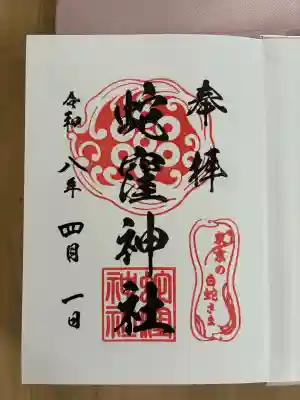 奉拝
東京の
白蛇さま
蛇窪神社
蛇窪神社
令和八年四月一日